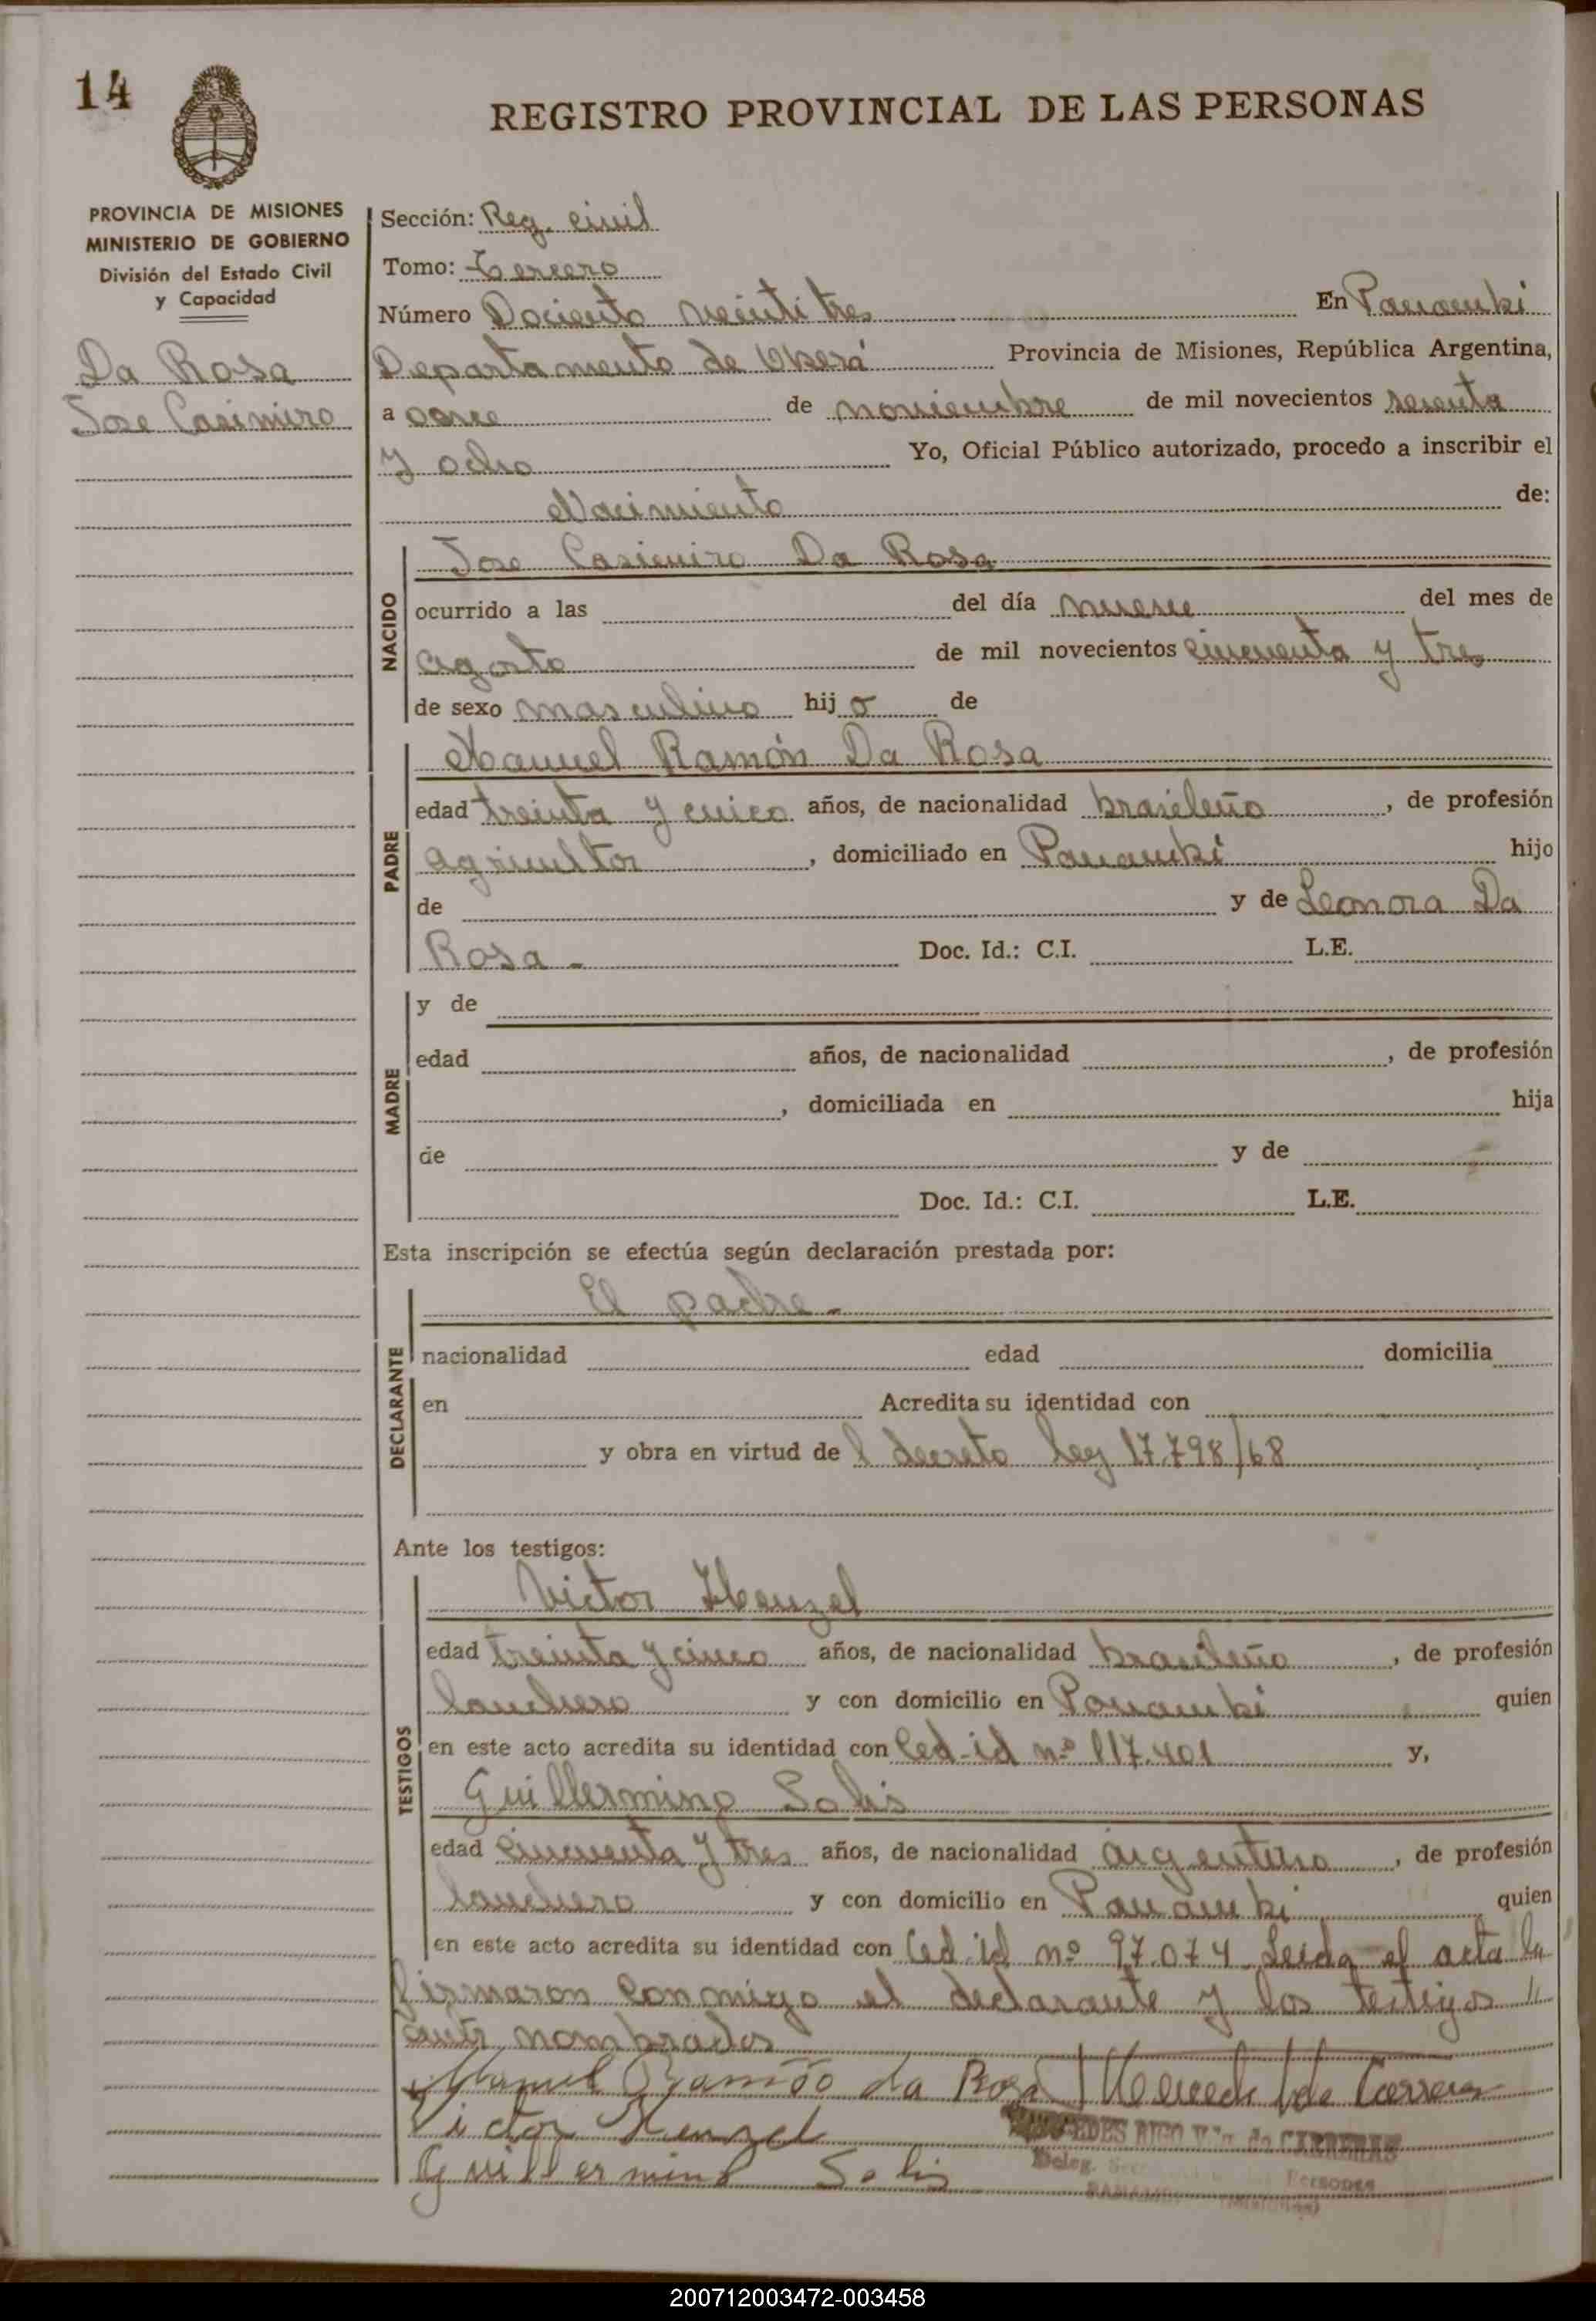 14
REGISTRO PROVINCIAL DE LAS PERSONAS
PROVINCIA DE MISIONES
MINISTERIO DE GOBIERNO
División del Estado Civil
y Capacidad
Da Rosa
Jose Casimiro
Sección: Reg. civil
Tomo: Tercero
Número Dociento veinti tres En Panambí
Departamento de Oberá Provincia de Misiones, República Argentina,
a once de noviembre de mil novecientos sesenta
y ocho Yo, Oficial Público autorizado, procedo a inscribir el
Nacimiento de:
NACIDO
Jose Casimiro Da Rosa
ocurrido a las del día nueve del mes de
agosto de mil novecientos cincuenta y tres
de sexo masculino hij o de
PADRE
Manuel Ramón Da Rosa
edad treinta y cinco años, de nacionalidad brasileño, de profesión
agricultor, domiciliado en Panambí hijo
de y de Leonora Da
Rosa - Doc. Id.: C.I. L.E.
MADRE
y de
edad años, de nacionalidad , de profesión
, domiciliada en hija
de y de
Doc. Id.: C.I. L.E.
Esta inscripción se efectúa según declaración prestada por:
DECLARANTE
El padre -
nacionalidad edad domicilia
en Acredita su identidad con
y obra en virtud de l decreto ley 17.798/68
Ante los testigos:
TESTIGOS
Victor Henzel
edad treinta y cinco años, de nacionalidad brasileño, de profesión
lanchero y con domicilio en Panambí quien
en este acto acredita su identidad con Ced. id nº 117.401 y,
Guillermino Solis
edad cincuenta y tres años, de nacionalidad argentino, de profesión
lanchero y con domicilio en Panambí quien
en este acto acredita su identidad con Ced. id nº 97.074 Leida el acta la
firmaron conmigo el declarante y los testigos "
ante nombrados
Manuel Ramão da Rosa
Victor Henzel
Guillermino Solis
MERCEDES RICO Vda. de CARRERAS
Deleg. Personas
200712003472-003458